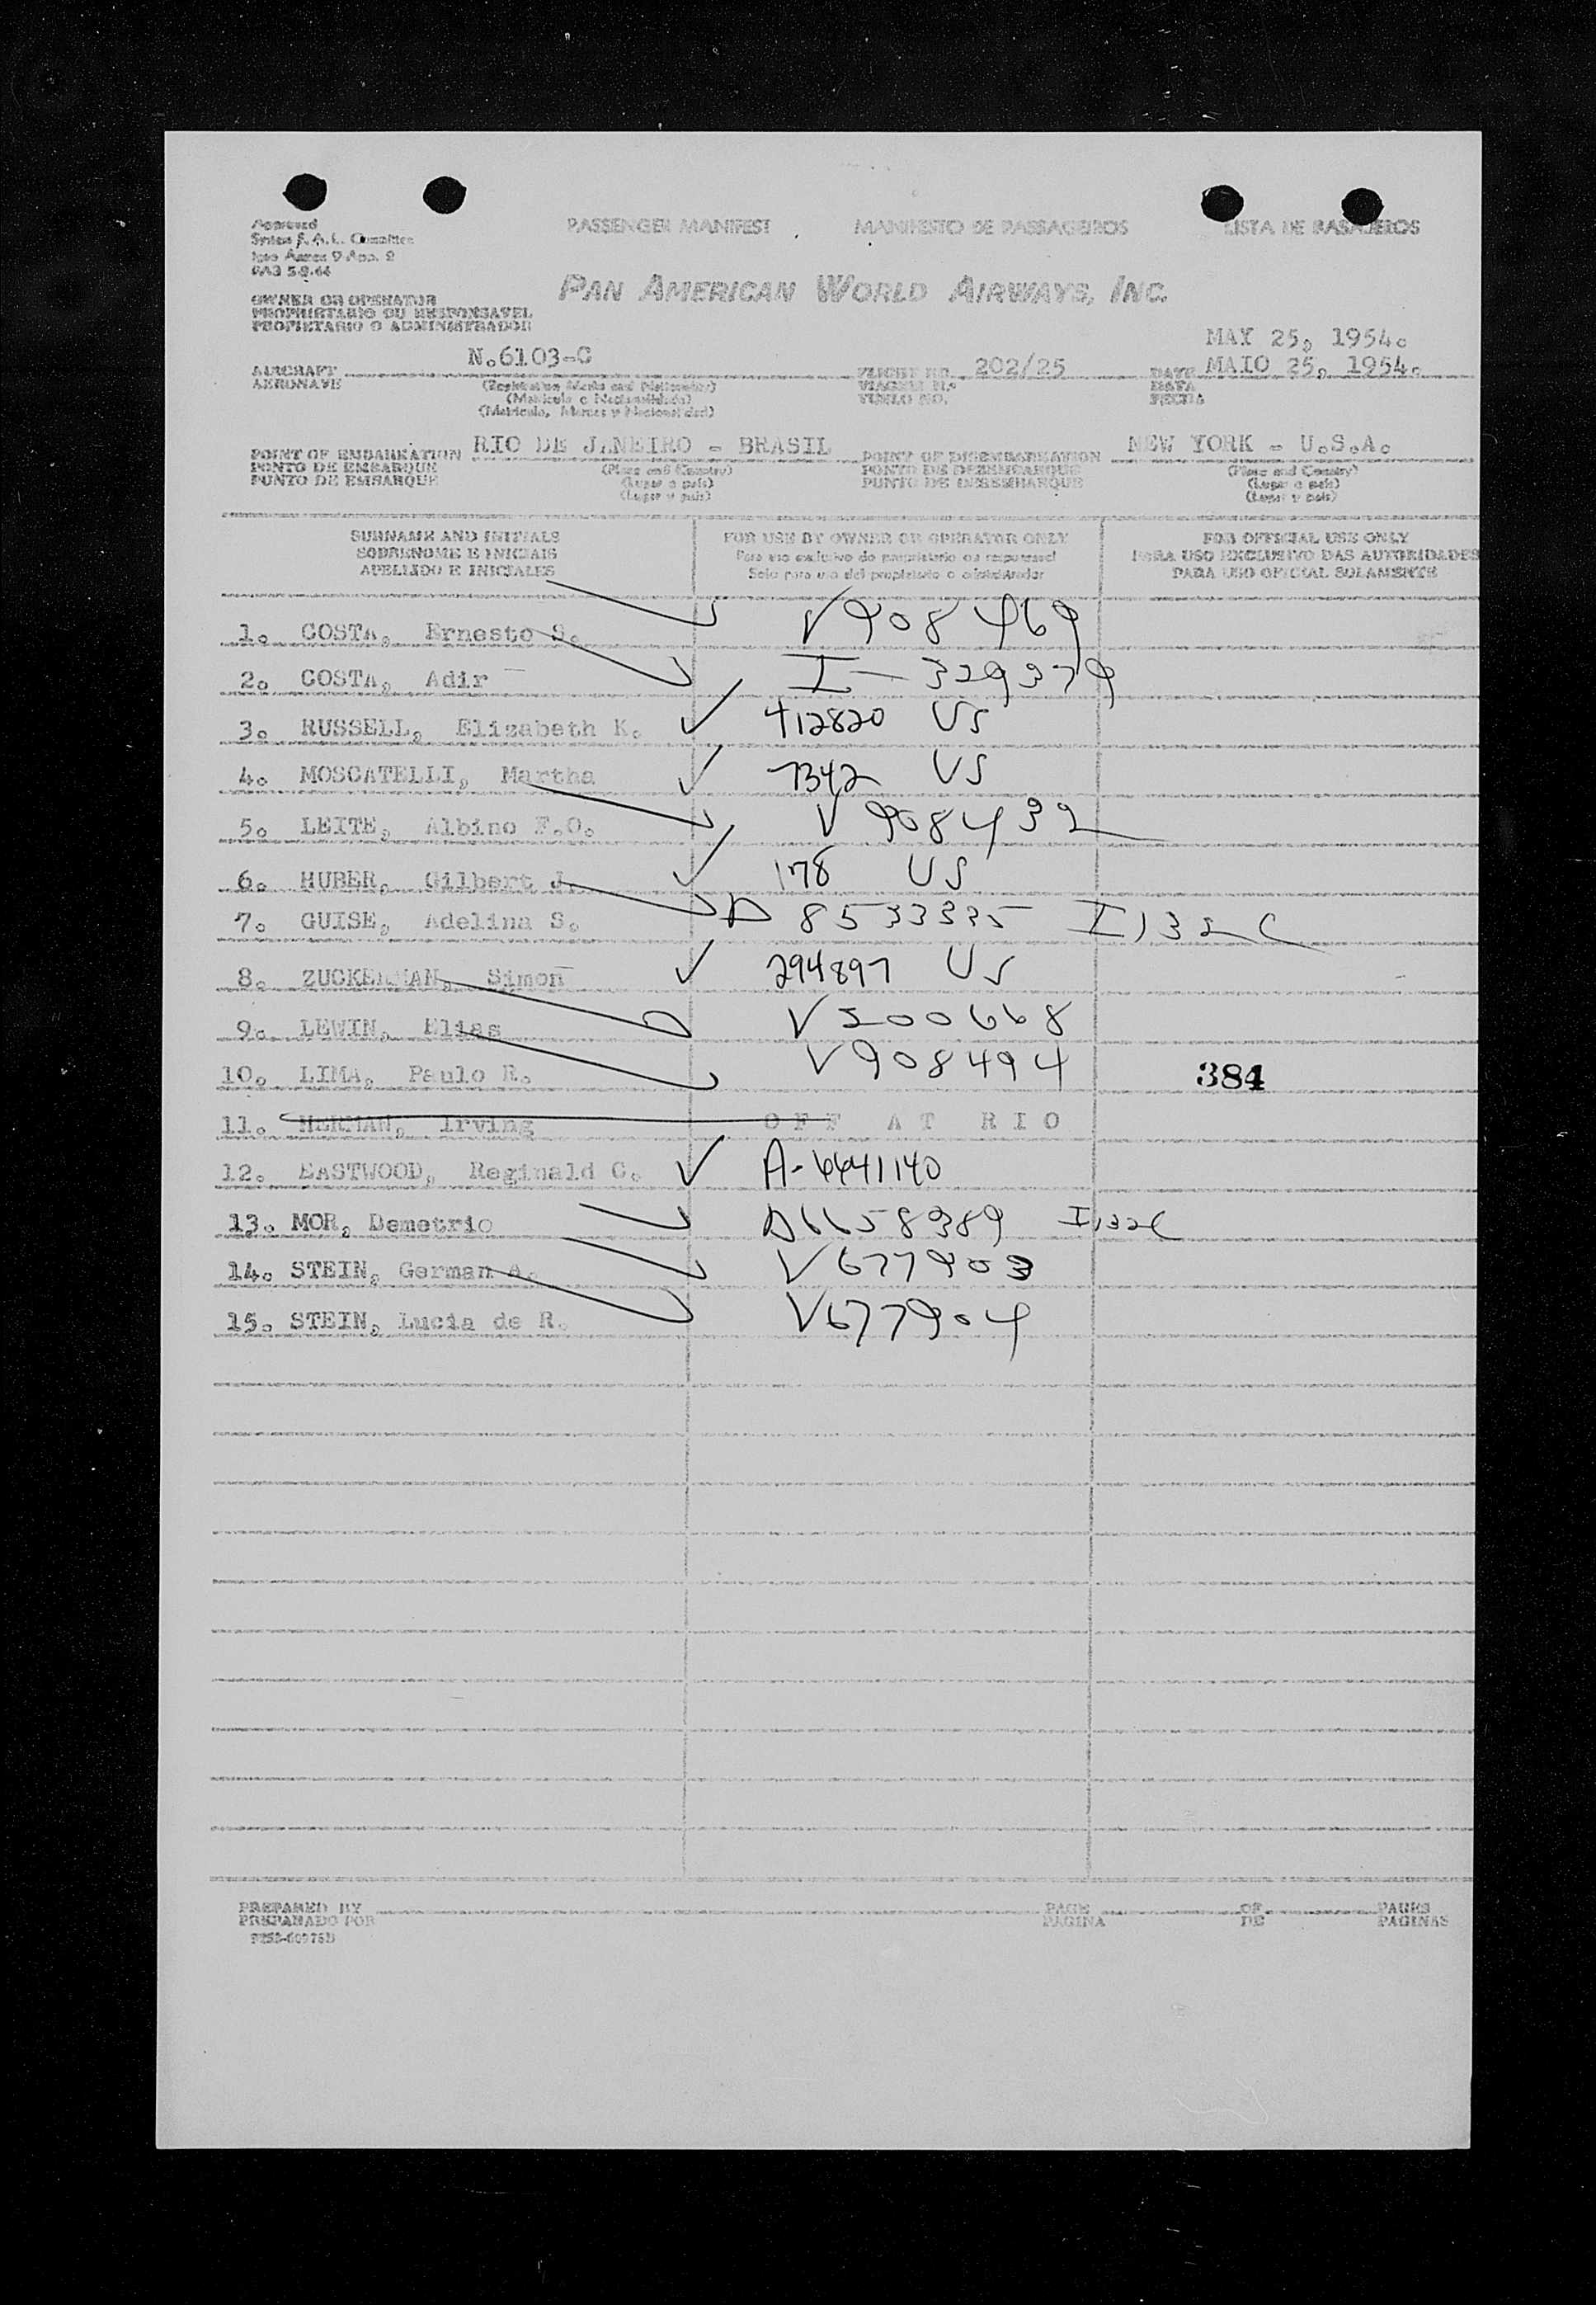 Approved
PASSENGER MANIFEST MANIFESTO DE PASSAGEIROS LISTA DE PASAJEROS
PAN AMERICAN WORLD AIRWAYS, INC.
OWNER OR OPERATOR
PROPRIETARIO OU RESPONSAVEL
PROPIETARIO O ADMINISTRADOR
MAY 25, 1954.
AIRCRAFT N.6103-C FLIGHT NO. 202/25 DATE MAIO 25, 1954.
AERONAVE (Registration Marks and Nationality) VIAGEM N.º DATA
(Matricula e Nacionalidade) VUELO NO. FECHA
(Matricula, Marcas y Nacionalidad)
POINT OF EMBARKATION RIO DE JANEIRO - BRASIL POINT OF DISEMBARKATION NEW YORK - U.S.A.
PONTO DE EMBARQUE (Place and Country) PONTO DE DESEMBARQUE (Place and Country)
PUNTO DE EMBARQUE (Lugar e pais) PUNTO DE DESEMBARQUE (Lugar e pais)
(Lugar y pais) (Lugar y pais)
SURNAME AND INITIALS FOR USE BY OWNER OR OPERATOR ONLY FOR OFFICIAL USE ONLY
SOBRENOME E INICIAIS Para uso exclusivo do proprietario ou responsavel PARA USO EXCLUSIVO DAS AUTORIDADES
APELLIDO E INICIALES Solo para uso del propietario o administrador PARA USO OFICIAL SOLAMENTE
1. COSTA, Ernesto S. V908469
2. COSTA, Adir I-329379
3. RUSSELL, Elizabeth K. 412820 US
4. MOSCATELLI, Martha 7342 US
5. LEITE, Albino F.O. V 908432
6. HUBER, Gilbert J. 178 US
7. GUISE, Adelina S. A 8533335 I132C
8. ZUCKERMAN, Simon 294897 US
9. LEWIN, Elias V200668
10. LIMA, Paulo R. V908494 384
11. HERMAN, Irving OFF AT RIO
12. EASTWOOD, Reginald C. A-4441140
13. MOR, Demetrio A6658989 I132C
14. STEIN, German A. V677903
15. STEIN, Lucia de R. V677904
PREPARED BY PAGE OF PAGES
PREPARADO POR PAGINA DE PAGINAS